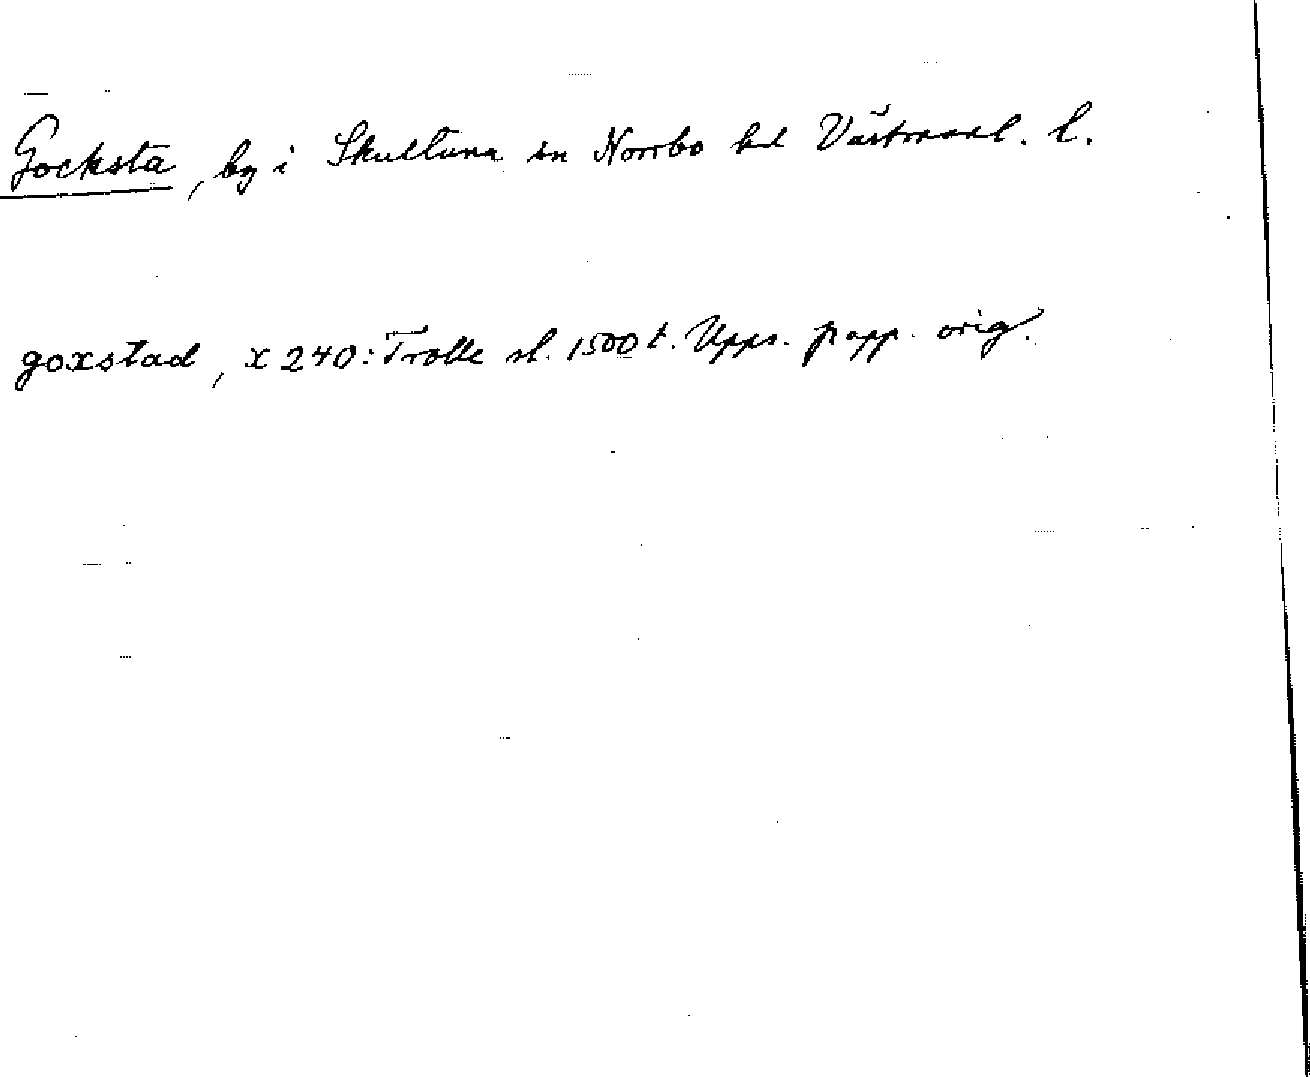 Gocksta, by i Skultuna sn Norrbo hd Västmanl. l.
goxstad, x 240: Trolle sl. 1500 t. Upps. papp. orig.